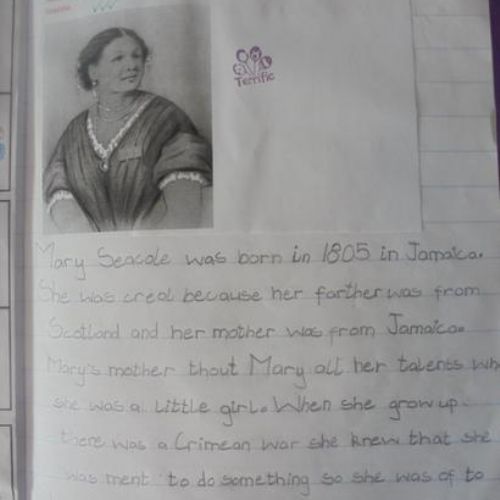 Terrific
Mary Seacole was born in 1805 in Jamaica.
She was creol because her farther was from
Scotland and her mother was from Jamaica.
Mary's mother thout Mary all her talents wh
she was a little girl. When she grow up
there was a Crimean war she knew that she
was ment to do something so she was of to